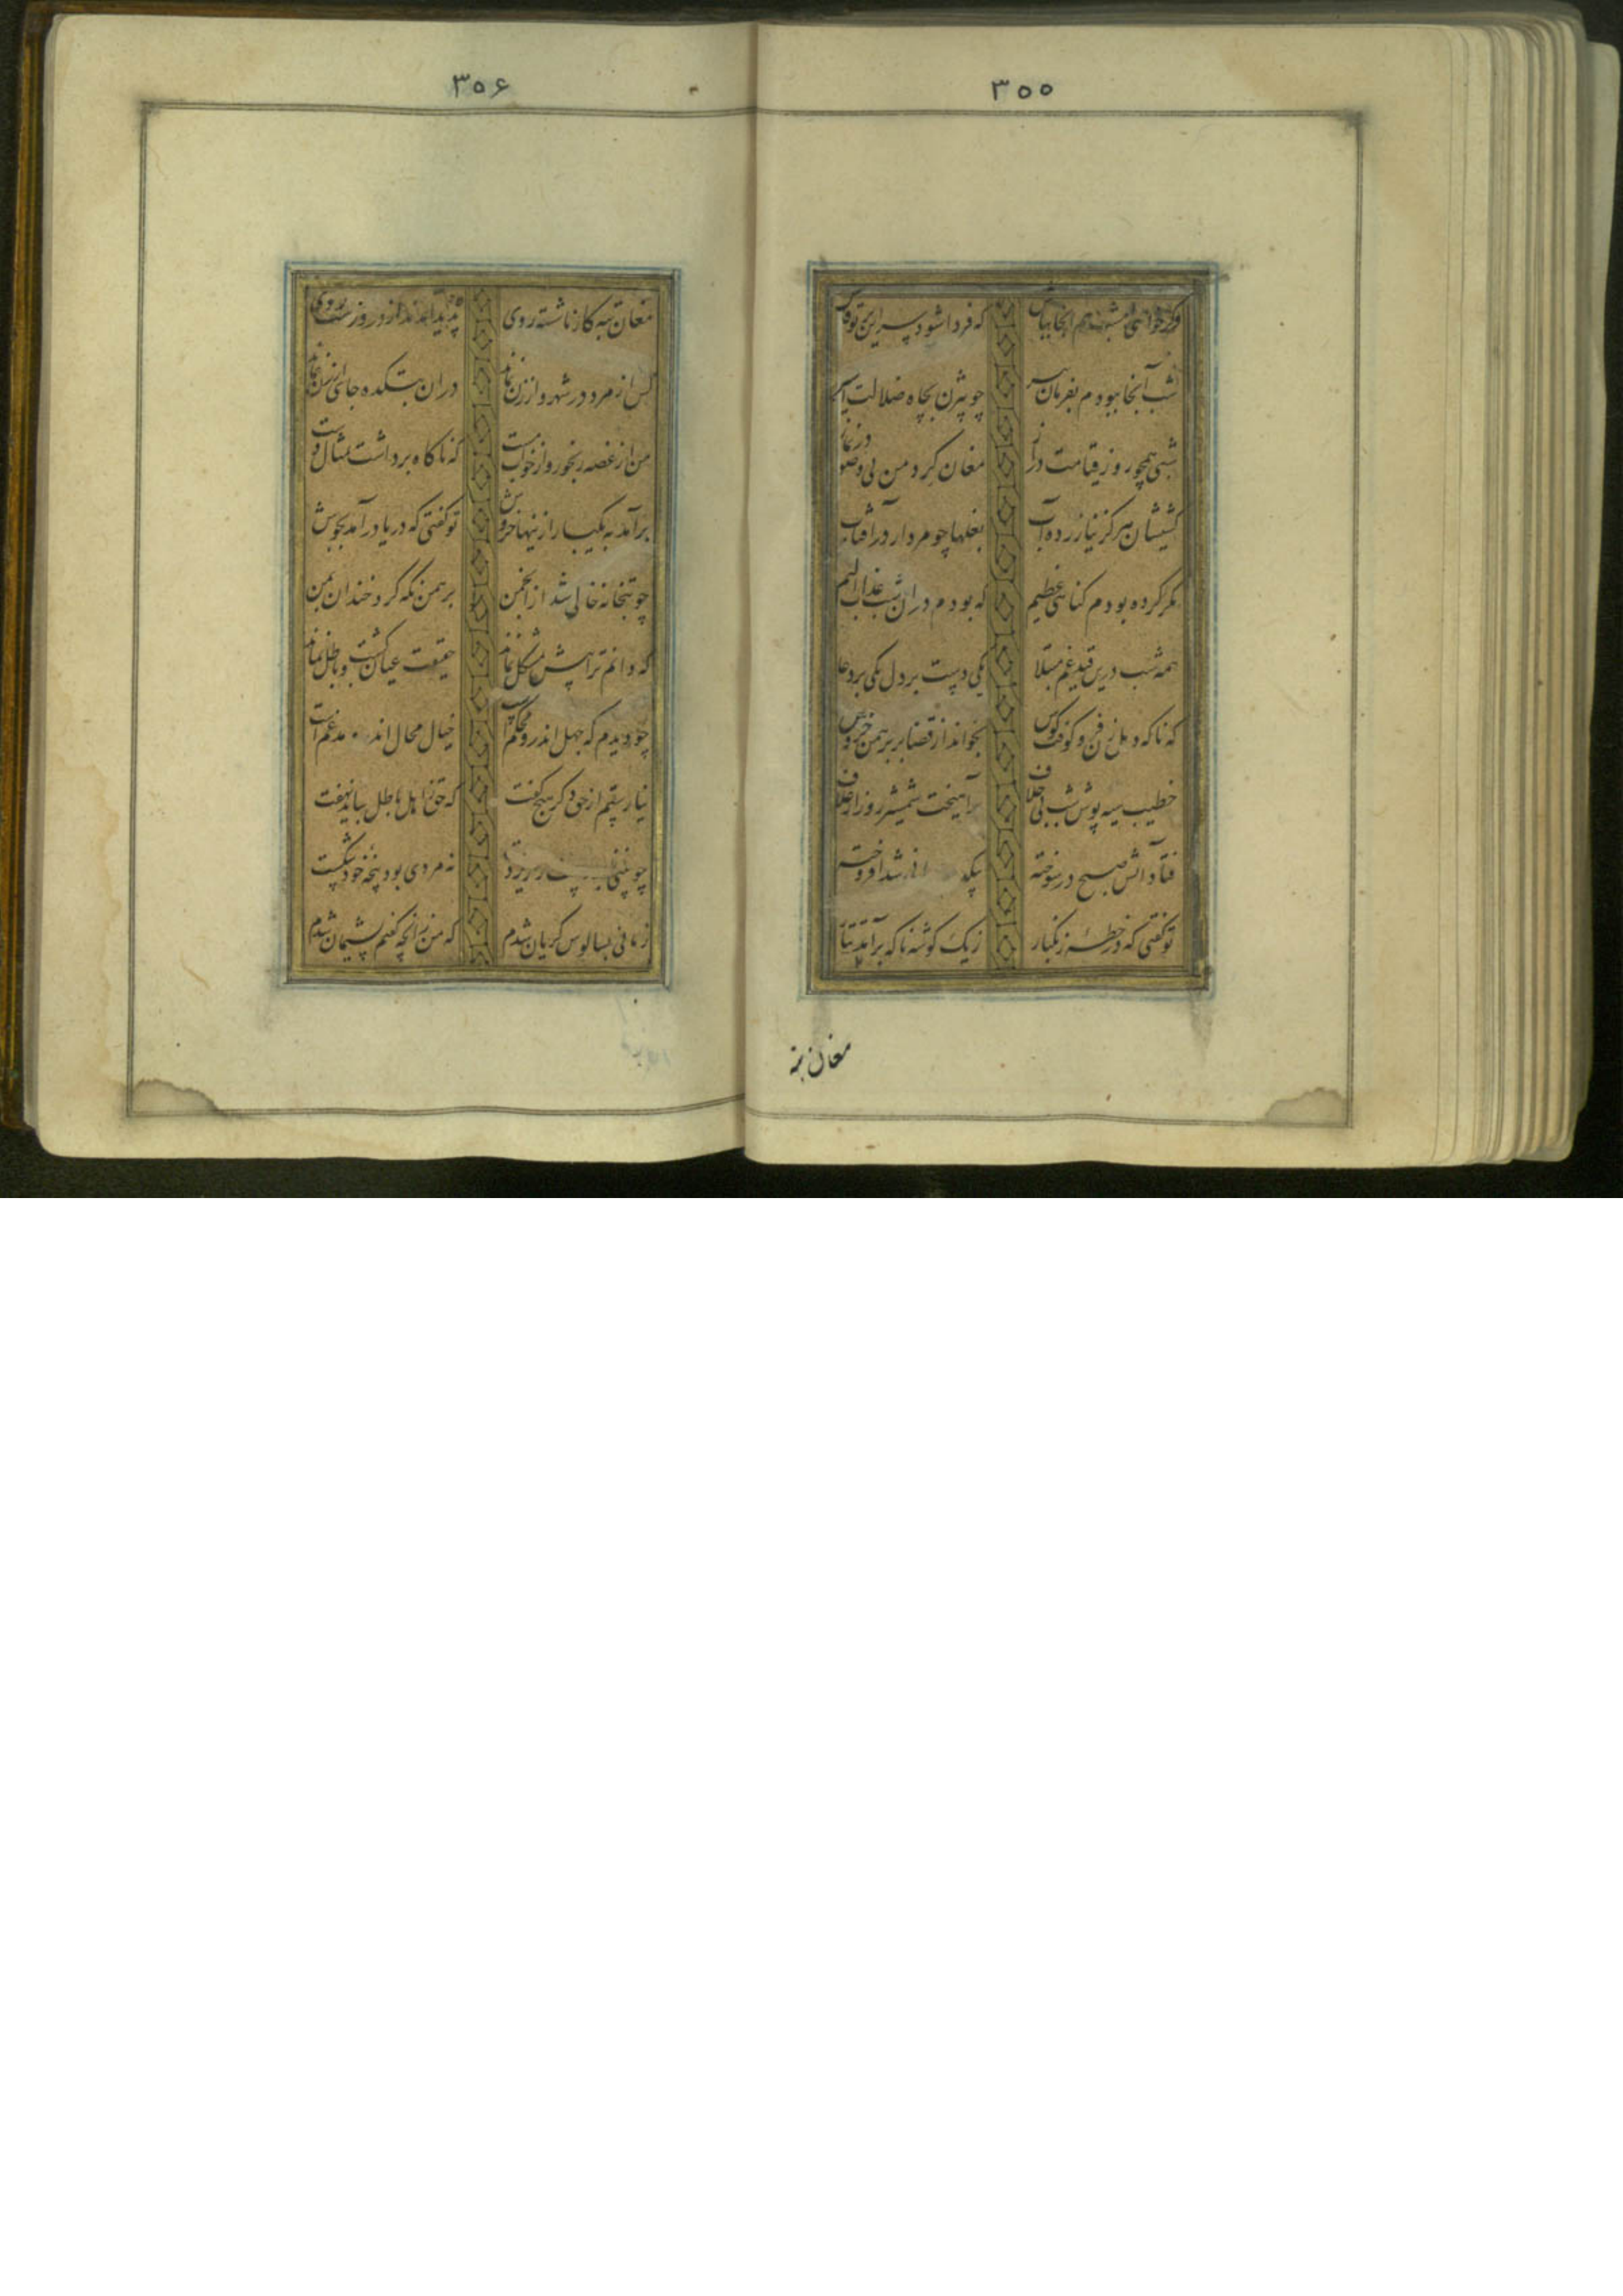 ۳۵۵
وگر خواهی امشب هم اینجا بباش که فردا شود سر این بر تو فاش
شب آنجا ببودم بفرمان پیر چو بیژن بچاه ضلالت اسیر
شبی همچو روز قیامت دراز مغان گرد من بی وضو در نماز
کشیشان هرگز نیازرده آب بغلها چو مردار در آفتاب
مگر کرده بودم گناهی عظیم که بودم دران شب عذاب الیم
همه شب درین قید غم مبتلا یکی دست بر دل یکی بر دعا
که ناگه دهل زن فرو کوفت کوس بخواند از قضا بر برهمن خروس
خطیب سیه پوش شب بی خلاف برآهیخت شمشیر روز از غلاف
فتاد آتش صبح در سوخته شد افروخته
تو گفتی که در خطهٔ زنگبار ز یک گوشه ناگه برآمد تتار
مغان تبه
۳۵۶
مغان تبه کار ناشسته روی پدید آمدند از در و دشت و کوی
کس از مرد در شهر و از زن نماند دران بتکده جای ارزن نماند
من از غصه رنجور و از خواب مست که ناگاه برداشت تمثال دست
برآمد به یکبار ازینها خروش تو گفتی که دریا درآمد بجوش
چو بتخانه خالی شد از انجمن برهمن نگه کرد خندان بمن
که دانم ترا پیش مشکل نماند حقیقت عیان گشت و باطل نماند
چو دیدم که جهل اندرو محکم است خیال محال اندر مدغم است
نیارستم از حق دگر هیچ گفت که حق ز اهل باطل بباید نهفت
چو بینی زبردست نه مردی بود پنجهٔ خود شکست
زمانی بسالوس گریان شدم که من زانچه گفتم پشیمان شدم